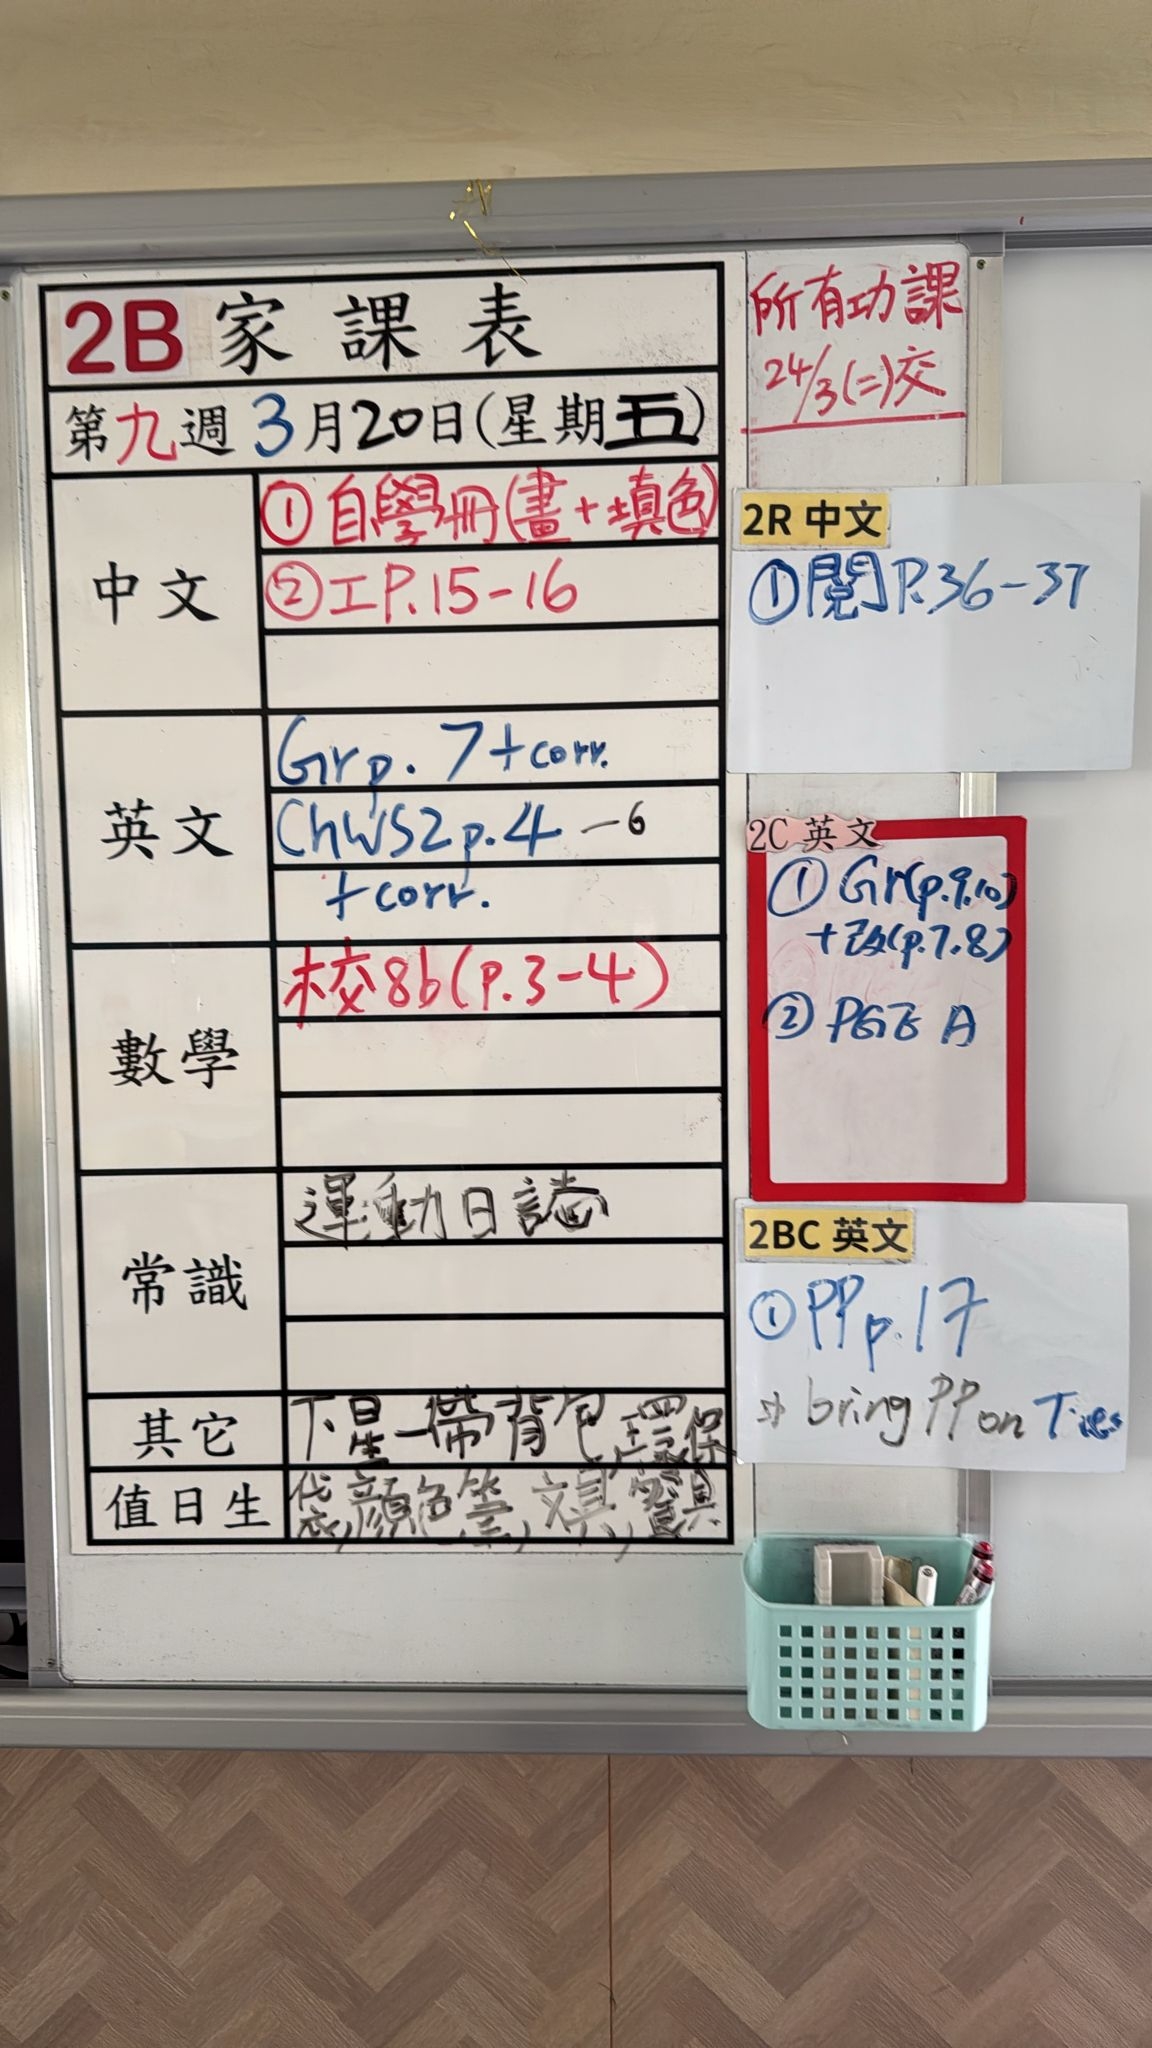 2B 家課表
第九週 3月20日(星期五)
中文
① 自學冊(畫+填色)
② 工P.15-16
英文
Gr p. 7 + corr.
ChWS2 p.4 - 6
+ corr.
數學
校8b(p.3-4)
常識
運動日誌
其它
下星一帶背包,環保
值日生
袋,顏色筆,文具,餐具
所有功課
24/3(二)交
2R 中文
① 閱P.36-37
2C 英文
① Gr(p.9.10)
+改(p.7.8)
② PGE A
2BC 英文
① PP p.17
⇒ bring PP on Tues